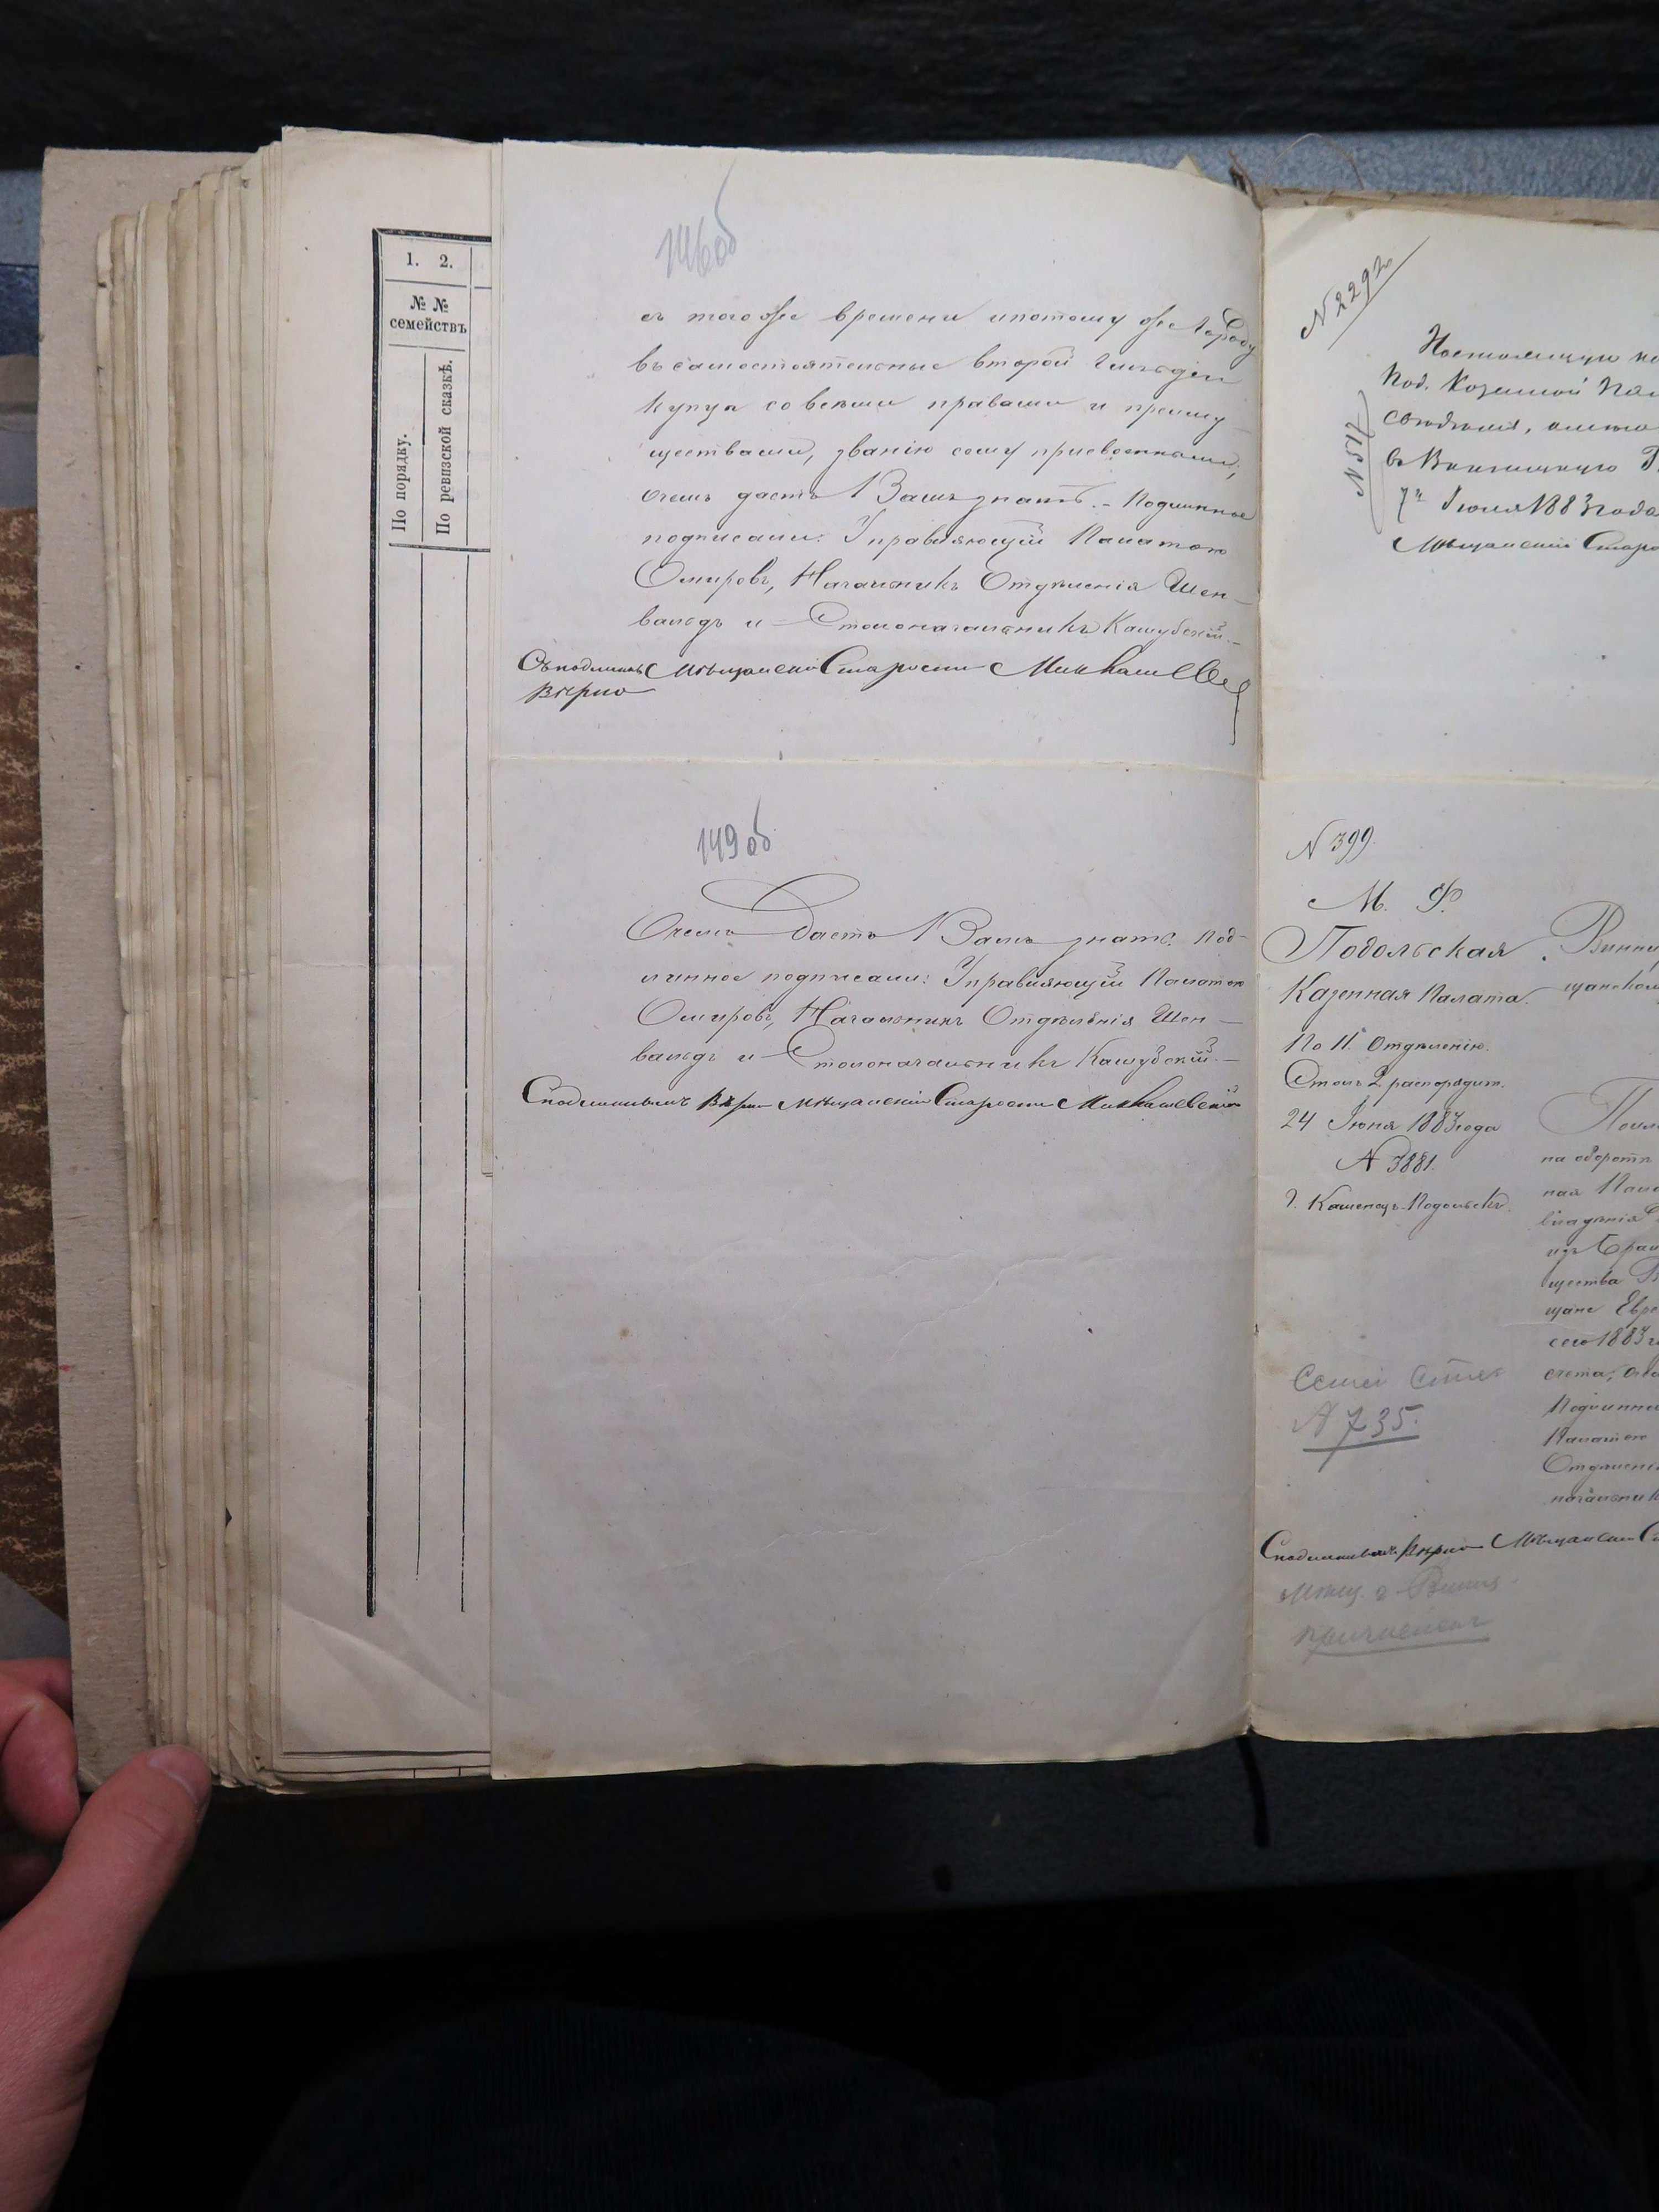 1. 2.
№ №
семействъ
По порядку.
По ревизской сказкѣ.
съ того же времени и потому же городу
въ самостоятельные второй гильдіи
купца со всѣми правами и преиму
ществами, званію сему присвоенными,
о чемъ даетъ Вамъ знать. – Подлинное
подписали: Управляющій Палатою
Смировъ, Начальникъ Отдѣленія Шен–
вальдъ и Столоначальникъ Кашубскій.–
Съ подлиннымъ Мѣщанскій Староста
Вѣрно
149 об
О чемъ даетъ Вамъ знать. Под–
линное подписали: Управляющій Палатою
Смировъ, Начальникъ Отдѣленія Шен–
вальдъ и Столоначальникъ Кашубскій.–
Съ подлиннымъ Вѣрно Мѣщанскій Староста
N 2292
N 517
Настоящую ко
Под. Казенной Пал
въ Винницкую
7го Іюля 1883 года
Мѣщанскій Старо
N 399.
М. Ф.
Подольская
Казенная Палата.
По II. Отдѣленію.
Столъ 2 распорядит.
24 Іюня 1883 года
N 3881.
г. Каменецъ-Подольскъ.
Винни
щанском
на оборотѣ
ная Пала
владѣнія
изъ Брац
щества
щане Евре
сего 1883 г
счета, о
Подлинное
Палатою
Отдѣленія
начальникъ
N 735.
Съ подлиннымъ Вѣрно Мѣщанскій С
причисленъ